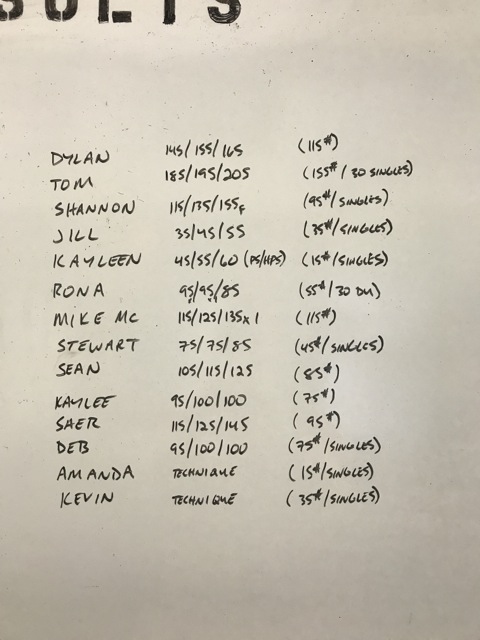 SULTS
DYLAN 145/155/165 (115#)
TOM 185/195/205 (155#/30 SINGLES)
SHANNON 115/135/155F (95#/SINGLES)
JILL 35/45/55 (35#/SINGLES)
KAYLEEN 45/55/60 (PS/HPS) (15#/SINGLES)
RONA 95/95/85 (55#/30 DU)
MIKE MC 115/125/135x1 (115#)
STEWART 75/75/85 (45#/SINGLES)
SEAN 105/115/125 (85#)
KAYLEE 95/100/100 (75#)
SAER 115/125/145 (95#)
DEB 95/100/100 (75#/SINGLES)
AMANDA TECHNIQUE (15#/SINGLES)
KEVIN TECHNIQUE (35#/SINGLES)